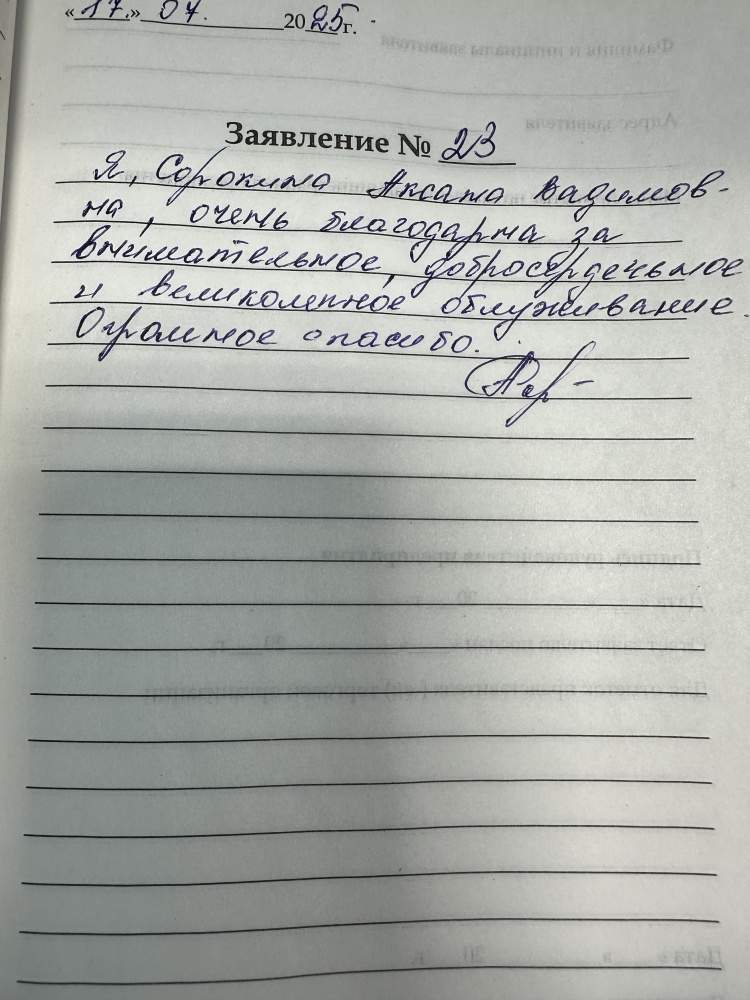 «17.» 07. 2025г.
Заявление № 23
Я, Сорокина Аксана Вадимов-
на, очень благодарна за
внимательное, добросердечьное
и великолепное облуживание.
Огромное спасибо.